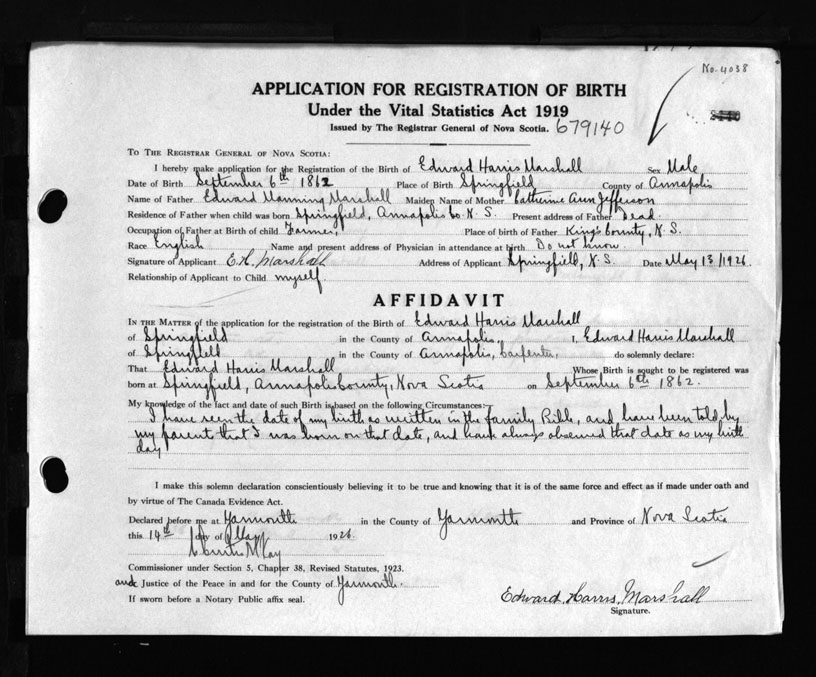 No. 4038
APPLICATION FOR REGISTRATION OF BIRTH
Under the Vital Statistics Act 1919
Issued by The Registrar General of Nova Scotia. 679140
TO THE REGISTRAR GENERAL OF NOVA SCOTIA:
I hereby make application for the Registration of the Birth of Edward Harris Marshall Sex Male
Date of Birth September 6th 1862 Place of Birth Springfield County of Annapolis
Name of Father Edward Manning Marshall Maiden Name of Mother Catherine Ann Jefferson
Residence of Father when child was born Springfield, Annapolis Co. N.S. Present address of Father Dead.
Occupation of Father at Birth of child Farmer, Place of birth of Father King's County, N.S.
Race English Name and present address of Physician in attendance at birth Do not know.
Signature of Applicant E.H. Marshall Address of Applicant Springfield, N.S. Date May 13/1926.
Relationship of Applicant to Child myself.
AFFIDAVIT
IN THE MATTER of the application for the registration of the Birth of Edward Harris Marshall
of Springfield in the County of Annapolis, I, Edward Harris Marshall
of Springfield in the County of Annapolis, Carpenter, do solemnly declare:
That Edward Harris Marshall Whose Birth is sought to be registered was
born at Springfield, Annapolis County, Nova Scotia on September 6th 1862.
My knowledge of the fact and date of such Birth is based on the following Circumstances:
I have seen the date of my birth as written in the family Bible, and have been told by
my parent that I was born on that date, and have always observed that date as my birth
day
I make this solemn declaration conscientiously believing it to be true and knowing that it is of the same force and effect as if made under oath and
by virtue of The Canada Evidence Act.
Declared before me at Yarmouth in the County of Yarmouth and Province of Nova Scotia
this 14th day of May 1926
Commissioner under Section 5, Chapter 38, Revised Statutes, 1923.
and Justice of the Peace in and for the County of Yarmouth.
If sworn before a Notary Public affix seal.
Edward Harris Marshall
Signature.